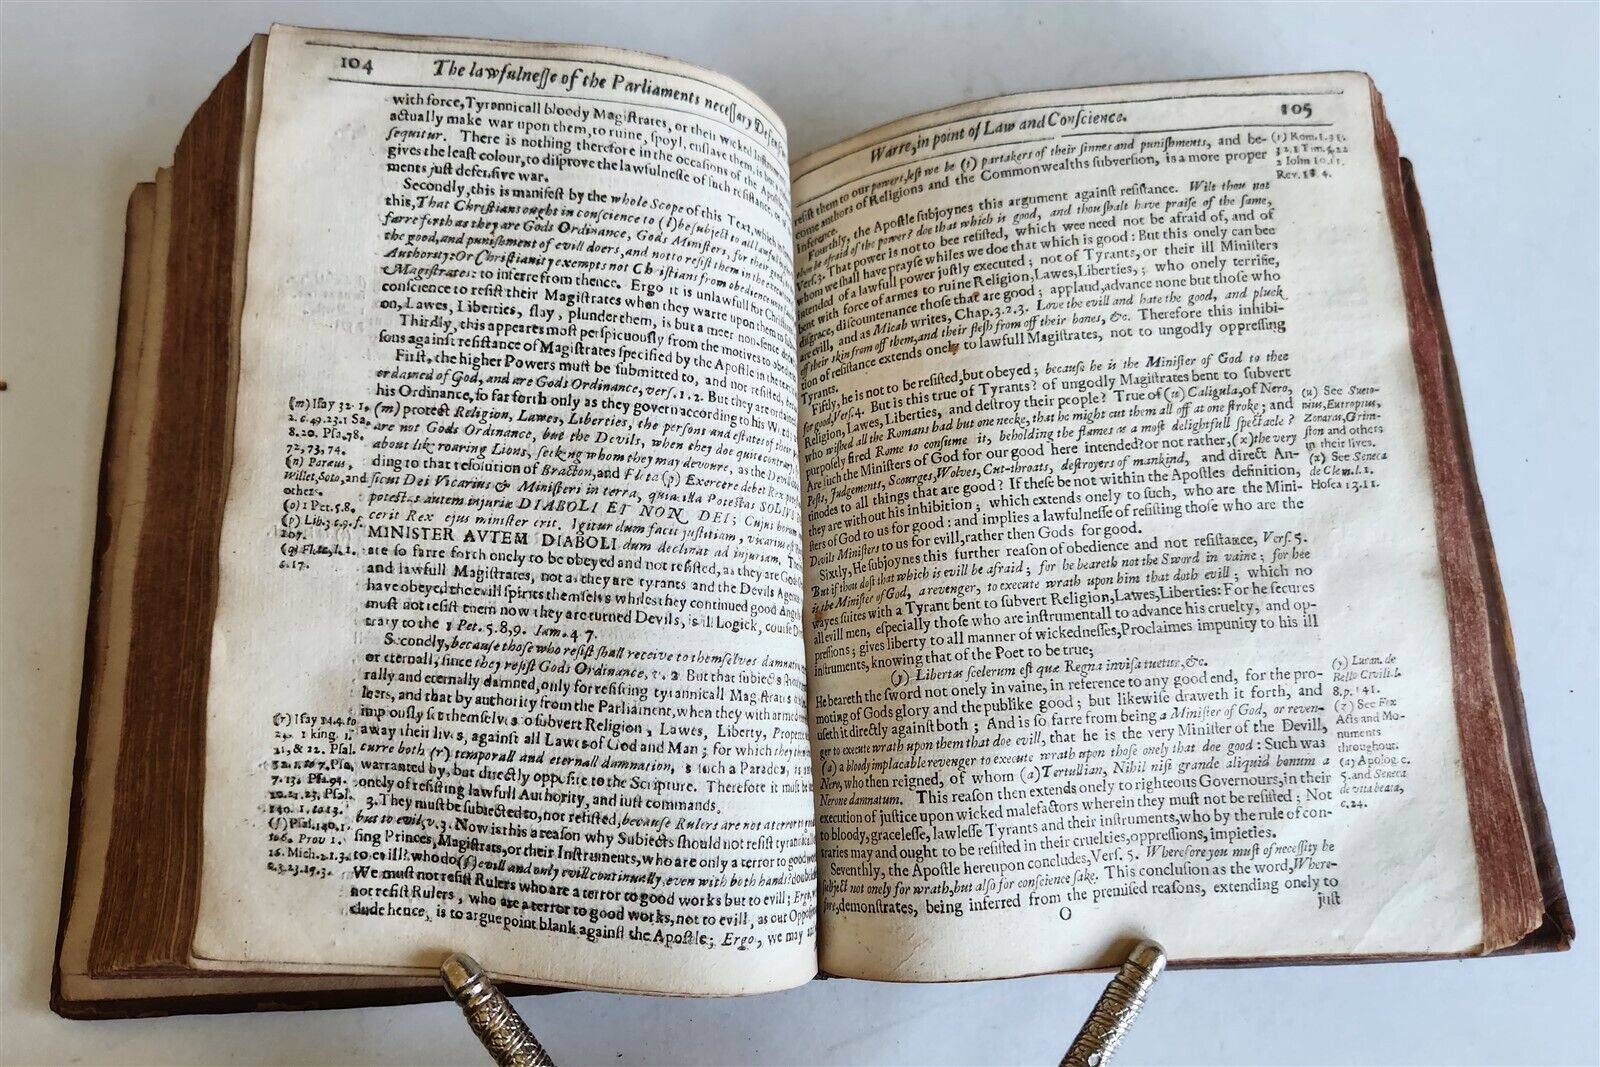 104 The lawfulnesse of the Parliaments necessary Defensive
with force, Tyrannicall bloody Magistrates, or their wicked
actually make war upon them, to ruine, spoyl, enslave them, is but a
sequitur. There is nothing therefore in the occasions of the
gives the least colour, to disprove the lawfulnesse of such resistance, or
ments just defensive war.
Secondly, this is manifest by the whole Scope of this Text, which in
this, That Christians ought in conscience to (l) be subject to all lawfull
farre forth as they are Gods Ordinance, Gods Ministers, for their good
the good, and punishment of evill doers, and not to resist them in the
Authority: Or Christianity exempts not Christians from obedience
Magistrates: to inferre from thence. Ergo it is unlawfull for Christians
conscience to resist their Magistrates when they warre upon them to
on, Lawes, Liberties, slay, plunder them, is but a meer non-sence
Thirdly, this appeares most perspicuously from the motives to
sons against resistance of Magistrates specified by the Apostle in the
First, the higher Powers must be submitted to, and not resisted,
ordained of God, and are Gods Ordinance, vers. 1. 2. But they are
his Ordinance, so far forth only as they govern according to his
(m) protect Religion, Lawes, Liberties, the persons and estates of their
are not Gods Ordinance, but the Devils, when they doe quite
about like roaring Lions, seeking whom they may devoure, as the
ding to that resolution of Bracton, and Fleta (p) Exercere debet Rex
sicut Dei Vicarius & Ministeri in terra, quia illa Potestas SOLIUS
potestas autem injuriæ DIABOLI ET NON DEI; Cujus
cerit Rex ejus minister erit. Igitur dum facit justitiam, vicarius est
MINISTER AVTEM DIABOLI dum declinat ad injuriam. They
are so farre forth onely to be obeyed and not resisted, as they are Gods
and lawfull Magistrates, not as they are tyrants and the Devils Agents
have obeyed the evill spirits themselves whiles they continued good Angels
must not resist them now they are turned Devils, is ill Logick,
trary to the 1 Pet. 5. 8, 9. Iam. 4 7.
Secondly, because those who resist shall receive to themselves damnation
or eternall; since they resist Gods Ordinance, v. 2 But that subjects
rally and eternally damned, only for resisting tyrannicall Magistrates
and that by authority from the Parliament, when they with armed
impiously set themselves to subvert Religion, Lawes, Liberty,
away their lives, against all Lawes of God and Man; for which they
curre both (r) temporall and eternall damnation, is such a Paradox,
warranted by, but directly opposite to the Scripture. Therefore it must be
onely of resisting lawfull Authority, and iust commands.
3. They must be subiected to, not resisted, because Rulers are not a terror to
but to evill, v. 3. Now is this a reason why Subiects should not resist
sing Princes, Magistrats, or their Instruments, who are only a terror to good
to evill? who do (s) evill and only evill continually, even with both hands?
We must not resist Rulers who are a terror to good works but to evill; Ergo,
not resist Rulers, who are a terror to good works, not to evill, as our
clude hence, is to argue point blank against the Apostle; Ergo, we may
(m) Isay 32. 1,
8. 20. Psa. 78.
72, 73, 74.
(n) Paræus,
Willet, Soto, and
others.
(o) 1 Pet. 5. 8.
(p) Lib. 3. c. 9. f.
107.
(q) Fleta, l. 1.
c. 17.
(r) Isay 14. 4. to
24. 1 king. 1.
21, & 22. Psal.
7. 13. Psa. 94.
10. 21. 23. Psal.
140. 1. to 13.
(s) Psal. 140. 1.
106. Prov 1.
16. Mich. 2. 1. 3.
Warre, in point of Law and Conscience. 105
resist them to our powers, lest we be (t) partakers of their sinnes and punishments, and be-
come authors of Religions and the Commonwealths subversion, is a more proper
Inference.
Fourthly, the Apostle subjoynes this argument against resistance. Wilt thou not
then be afraid of the power? doe that which is good, and thou shalt have praise of the same,
Vers. 3. That power is not to bee resisted, which wee need not be afraid of, and of
whom we shall have prayse whiles we doe that which is good: But this onely can bee
intended of a lawfull power justly executed; not of Tyrants, or their ill Ministers
bent with force of armes to ruine Religion, Lawes, Liberties,; who onely terrifie,
disgrace, discountenance those that are good; applaud, advance none but those who
are evill, and as Micah writes, Chap. 3. 2. 3. Love the evill and hate the good, and pluck
off their skin from off them, and their flesh from off their bones, &c. Therefore this inhibi-
tion of resistance extends onely to lawfull Magistrates, not to ungodly oppressing
Tyrants.
Fifly, he is not to be resisted, but obeyed; because he is the Minister of God to thee
for good, Vers. 4. But is this true of Tyrants? of ungodly Magistrates bent to subvert
Religion, Lawes, Liberties, and destroy their people? True of (u) Caligula, of Nero,
who wished all the Romans had but one necke, that he might cut them all off at one stroke; and
purposely fired Rome to consume it, beholding the flames as a most delightfull spectacle?
Are such the Ministers of God for our good here intended? or not rather, (x) the very
Pests, Judgements, Scourges, Wolves, Cut-throats, destroyers of mankind, and direct An-
tinodes to all things that are good? If these be not within the Apostles definition,
they are without his inhibition; which extends onely to such, who are the Mini-
sters of God to us for good: and implies a lawfulnesse of resisting those who are the
Devils Ministers to us for evill, rather then Gods for good.
Sixtly, He subjoynes this further reason of obedience and not resistance, Vers. 5.
But if thou dost that which is evill be afraid; for he beareth not the Sword in vaine; for hee
is the Minister of God, a revenger, to execute wrath upon him that doth evill; which no
wayes suites with a Tyrant bent to subvert Religion, Lawes, Liberties: For he secures
all evill men, especially those who are instrumentall to advance his cruelty, and op-
pressions; gives liberty to all manner of wickednesses, Proclaimes impunity to his ill
instruments, knowing that of the Poet to be true;
(y) Libertas scelerum est quæ Regna invisa tuetur, &c.
He beareth the sword not onely in vaine, in reference to any good end, for the pro-
moting of Gods glory and the publike good; but likewise draweth it forth, and
useth it directly against both; And is so farre from being a Minister of God, or reven-
ger to execute wrath upon them that doe evill, that he is the very Minister of the Devill,
(z) a bloody implacable revenger to execute wrath upon those onely that doe good: Such was
Nero, who then reigned, of whom (a) Tertullian, Nihil nisi grande aliquid bonum a
Nerone damnatum. This reason then extends onely to righteous Governours, in their
execution of justice upon wicked malefactors wherein they must not be resisted; Not
to bloody, gracelesse, lawlesse Tyrants and their instruments, who by the rule of con-
traries may and ought to be resisted in their cruelties, oppressions, impieties.
Seventhly, the Apostle hereupon concludes, Vers. 5. Wherefore you must of necessity be
subject not onely for wrath, but also for conscience sake. This conclusion as the word, Where-
fore, demonstrates, being inferred from the premised reasons, extending onely to
O just
(t) Rom. 1. 31.
2 Iohn 10. 11.
Rev. 18 4.
(u) See Sueto-
nius, Eutropius,
Zonaras, Grim-
ston and others
in their lives.
(x) See Seneca
de Clem. l. 1.
Hosea 13. 11.
(y) Lucan. de
Bello Civili. l.
8. p. 141.
(z) See Fox
Acts and Mo-
numents
throughout.
(a) Apolog. c.
5. and Seneca
de vita beata,
c. 24.